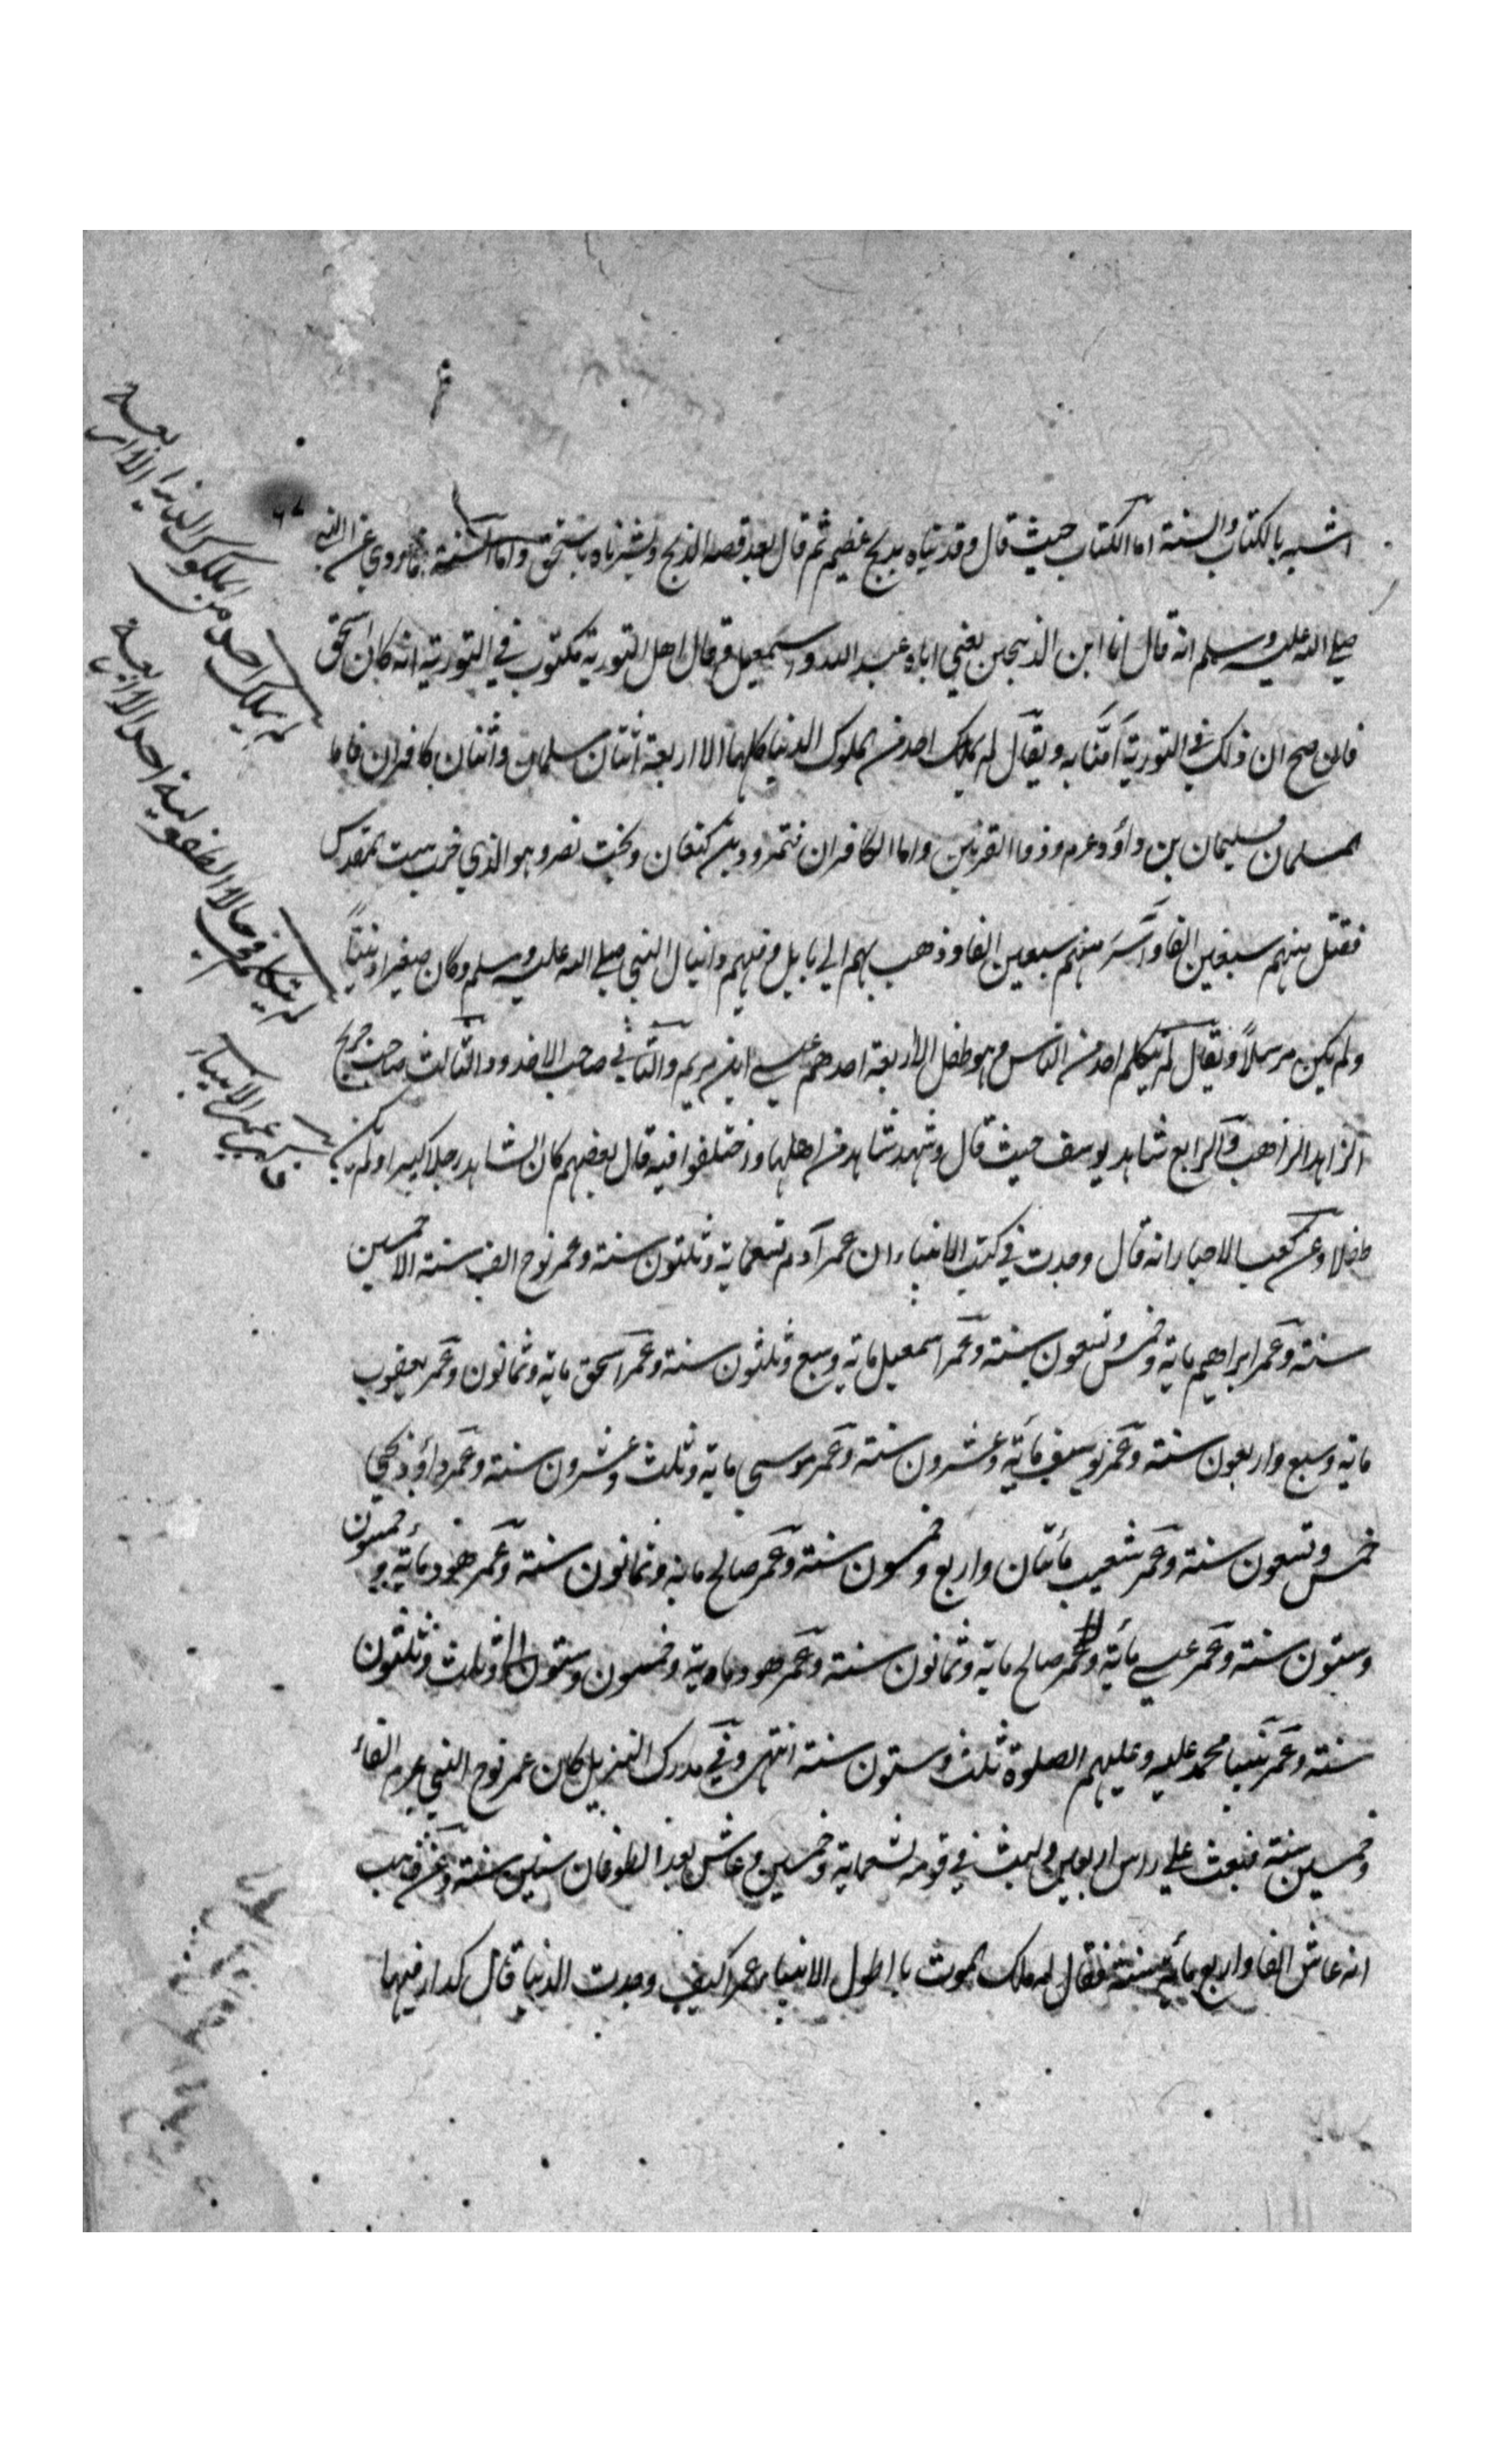 اشبه بالكتاب والسنة اما الكتاب حيث قال وفديناه بذبح عظيم ثم قال بعد قصة الذبح وبشرناه باسحق واما السنة فما روي عن النبي
صلي الله عليه وسلم انه قال انا ابن الذبيحين يعني اباه عبد الله واسمعيل وقال اهل التورية مكتوب في التورية انه كان اسحق
فان صح ان ذلك في التورية آمنا به ويقال لم يملك احد من ملوك الدنيا كلها الا اربعة اثنان مسلمان واثنان كافران فاما
المسلمان فسليمان بن داؤد عرم وذو القرنين واما الكافران فنمرود بن كنعان وبخت نصر وهو الذي خرب بيت المقدس
فقتل منهم سبعين الفا واسر منهم سبعين الفا وذهب بهم الي بابل وفيهم دانيال النبي صلي الله عليه وسلم وكان صغيرا
ولم يكن مرسلاً ويقال لم يتكلم احد من الناس وهو طفل الا اربعة احدهم عيسي ابن مريم والثاني صاحب الاخدود والثالث صاحب جريج
الزاهد الراهب والرابع شاهد يوسف حيث قال وشهد شاهد من اهلها واختلفوا فيه قال بعضهم كان الشاهد رجلا كبيرا ولم يكن
طفلا وعن كعب الاحبار انه قال وجدت في كتب الانبياء ان عمر آدم تسعماية وثلثون سنة وعمر نوح الف سنة الا خمسين
سنة وعمر ابراهيم ماية وخمس وتسعون سنة وعمر اسمعيل ماية وسبع وثلثون سنة وعمر اسحق ماية وثمانون وعمر يعقوب
ماية وسبع واربعون سنة وعمر يوسف مائة وعشرون سنة وعمر موسي ماية وثلث وعشرون سنة وعمر داؤد
خمس وتسعون سنة وعمر شعيب مأتان واربع وخمسون سنة وعمر صالح ماية وثمانون سنة وعمر هود مأية وخمسون
وستون سنة وعمر عيسي مأية وعمر صالح ماية وثمانون سنة وعمر هود ماية وخمسون وستون وثلث وثلثون
سنة وعمر نبينا محمد عليه وعليهم الصلوة ثلث وستون سنة انتهي وفي مدارك التنزيل كان عمر نوح النبي عرم الفا
وخمسين سنة فبعث علي راس اربعين ولبث في قومه تسعماية وخمسين وعاش بعد الطوفان ستين سنة وعن وهب
انه عاش الفا واربع مائة سنة فقال له ملك الموت يا اطول الانبياء عمرا كيف وجدت الدنيا قال كدار فيها
لم يملك احد من الملوك الدنيا الا اربعة
لم يتكلم في حالة الطفولية احد الا اربعة
عمر الانبياء